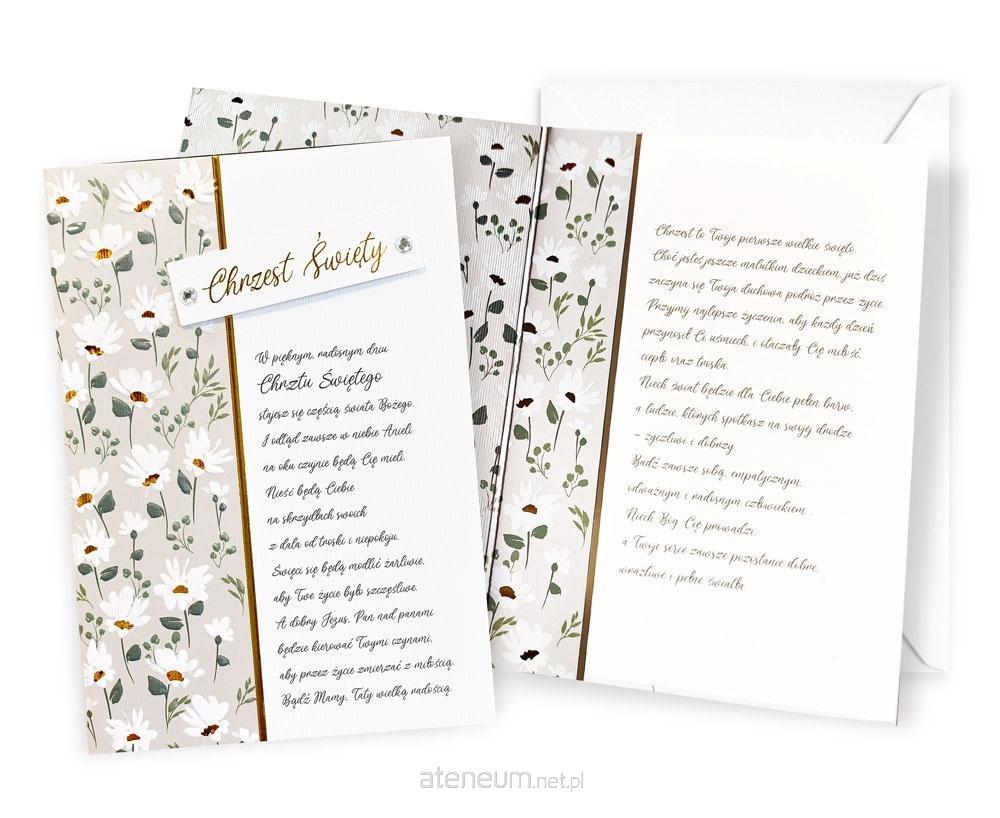 Chrzest Święty
W pięknym, radosnym dniu
Chrztu Świętego
stajesz się częścią świata Bożego.
I odtąd zawsze w niebie Anieli
na oku czujnie będą Cię mieli.
Nieść będą Ciebie
na skrzydłach swoich
z dala od troski i niepokoju.
Święci się będą modlić żarliwie,
aby Twe życie było szczęśliwe.
A dobry Jezus, Pan nad panami
będzie kierować Twymi czynami,
aby przez życie zmierzać z miłością.
Bądź Mamy, Taty wielką radością.
Chrzest to Twoje pierwsze wielkie święto.
Choć jesteś jeszcze malutkim dzieckiem, już dziś
zaczyna się Twoja duchowa podróż przez życie.
Przyjmij najlepsze życzenia, aby każdy dzień
przynosił Ci uśmiech, i otaczały Cię miłość,
ciepło oraz troska.
Niech świat będzie dla Ciebie pełen barw,
a ludzie, których spotkasz na swojej drodze
– życzliwi i dobrzy.
Bądź zawsze sobą, empatycznym,
odważnym i radosnym człowiekiem .
Niech Bóg Cię prowadzi,
a Twoje serce zawsze pozostanie dobre,
wrażliwe i pełne światła.
ateneum.net.pl